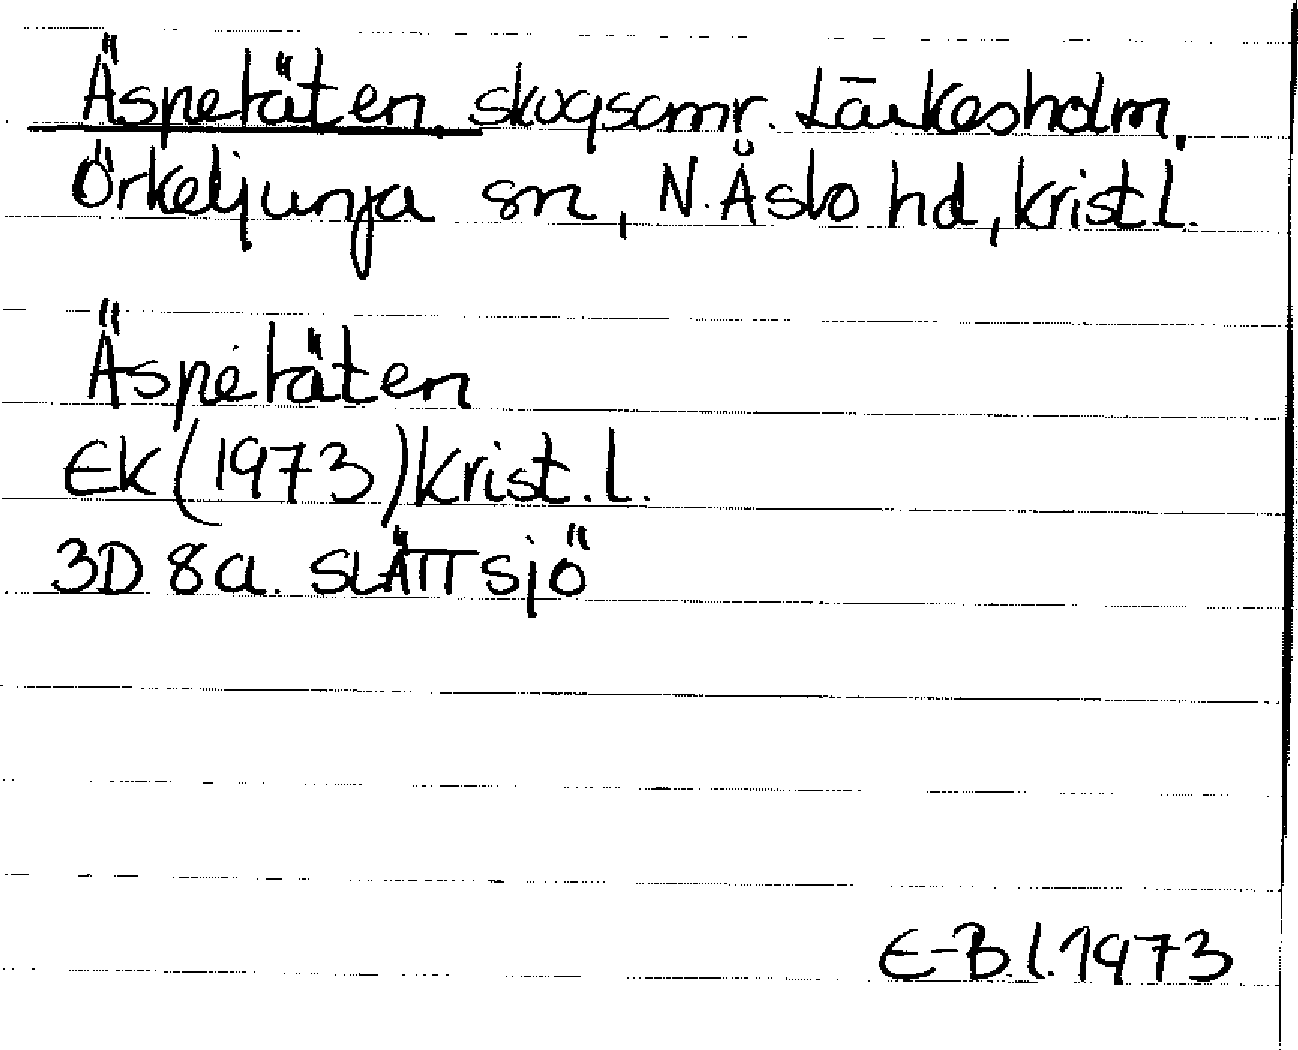 Äspetäten skogsomr. Lärkesholm,
Örkeljunga sn, N.Åsbo hd, krist.l.
Äspetäten
EK (1973) krist. l.
3D 8a. SLÄTTSjÖ
E-B.l.1973